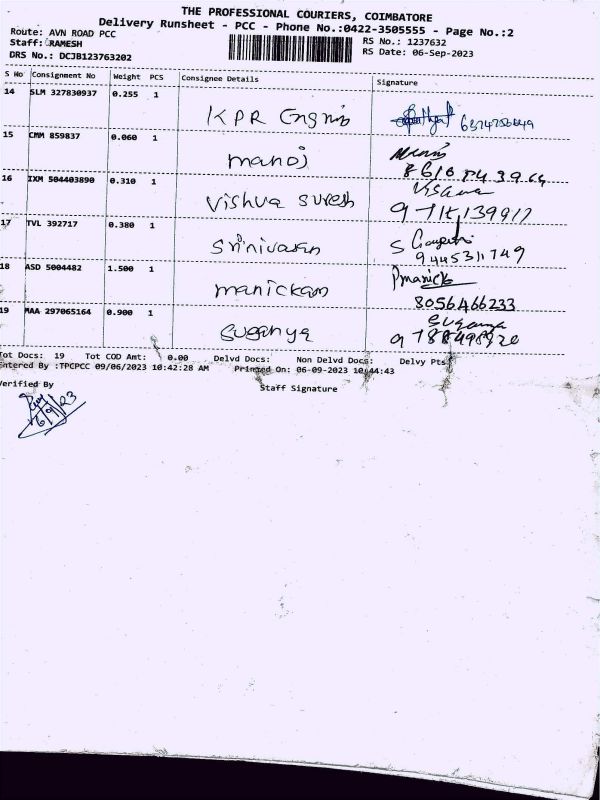 THE PROFESSIONAL COURIERS, COIMBATORE
Delivery Runsheet - PCC - Phone No.:0422-3505555 - Page No.:2
Route: AVN ROAD PCC
RS No.: 1237632
Staff: RAMESH
RS Date: 06-Sep-2023
DRS No.: DCJB123763202
S No Consignment No Weight PCS Consignee Details Signature
14 SLM 327830937 0.255 1
KPR
15 CMM 859837 0.060 1
manoj
16 IXM 504403890 0.310 1
Vishva Suresh
17 TVL 392717 0.380 1
Srinivasan
S
9445311749
18 ASD 5004482 1.500 1
manickam
Pmanick
8056466233
19 MAA 297065164 0.900 1
Suganya
Suganya
Tot Docs: 19 Tot COD Amt: 0.00 Delvd Docs: Non Delvd Docs: Delvy Pts
Entered By :TPCPCC 09/06/2023 10:42:28 AM Printed On: 06-09-2023 10:44:43
Verified By
Staff Signature
6/9/23